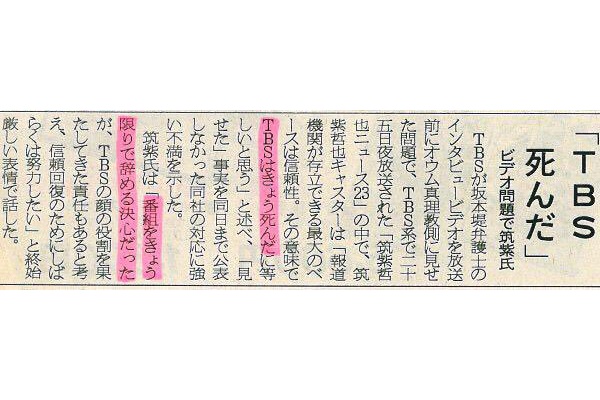 「TBS
死んだ」
ビデオ問題で筑紫氏
TBSが坂本堤弁護士の
インタビュービデオを放送
前にオウム真理教側に見せ
た問題で、TBS系で二十
五日夜放送された「筑紫哲
也ニュース23」の中で、筑
紫哲也キャスターは「報道
機関が存立できる最大のベ
ースは信頼性。その意味で
TBSはきょう死んだに等
しいと思う」と述べ、「見
せた」事実を同日まで公表
しなかった同社の対応に強
い不満を示した。
筑紫氏は「番組をきょう
限りで辞める決心だった
が、TBSの顔の役割を果
たしてきた責任もあると考
え、信頼回復のためにしば
らくは努力したい」と終始
厳しい表情で話した。